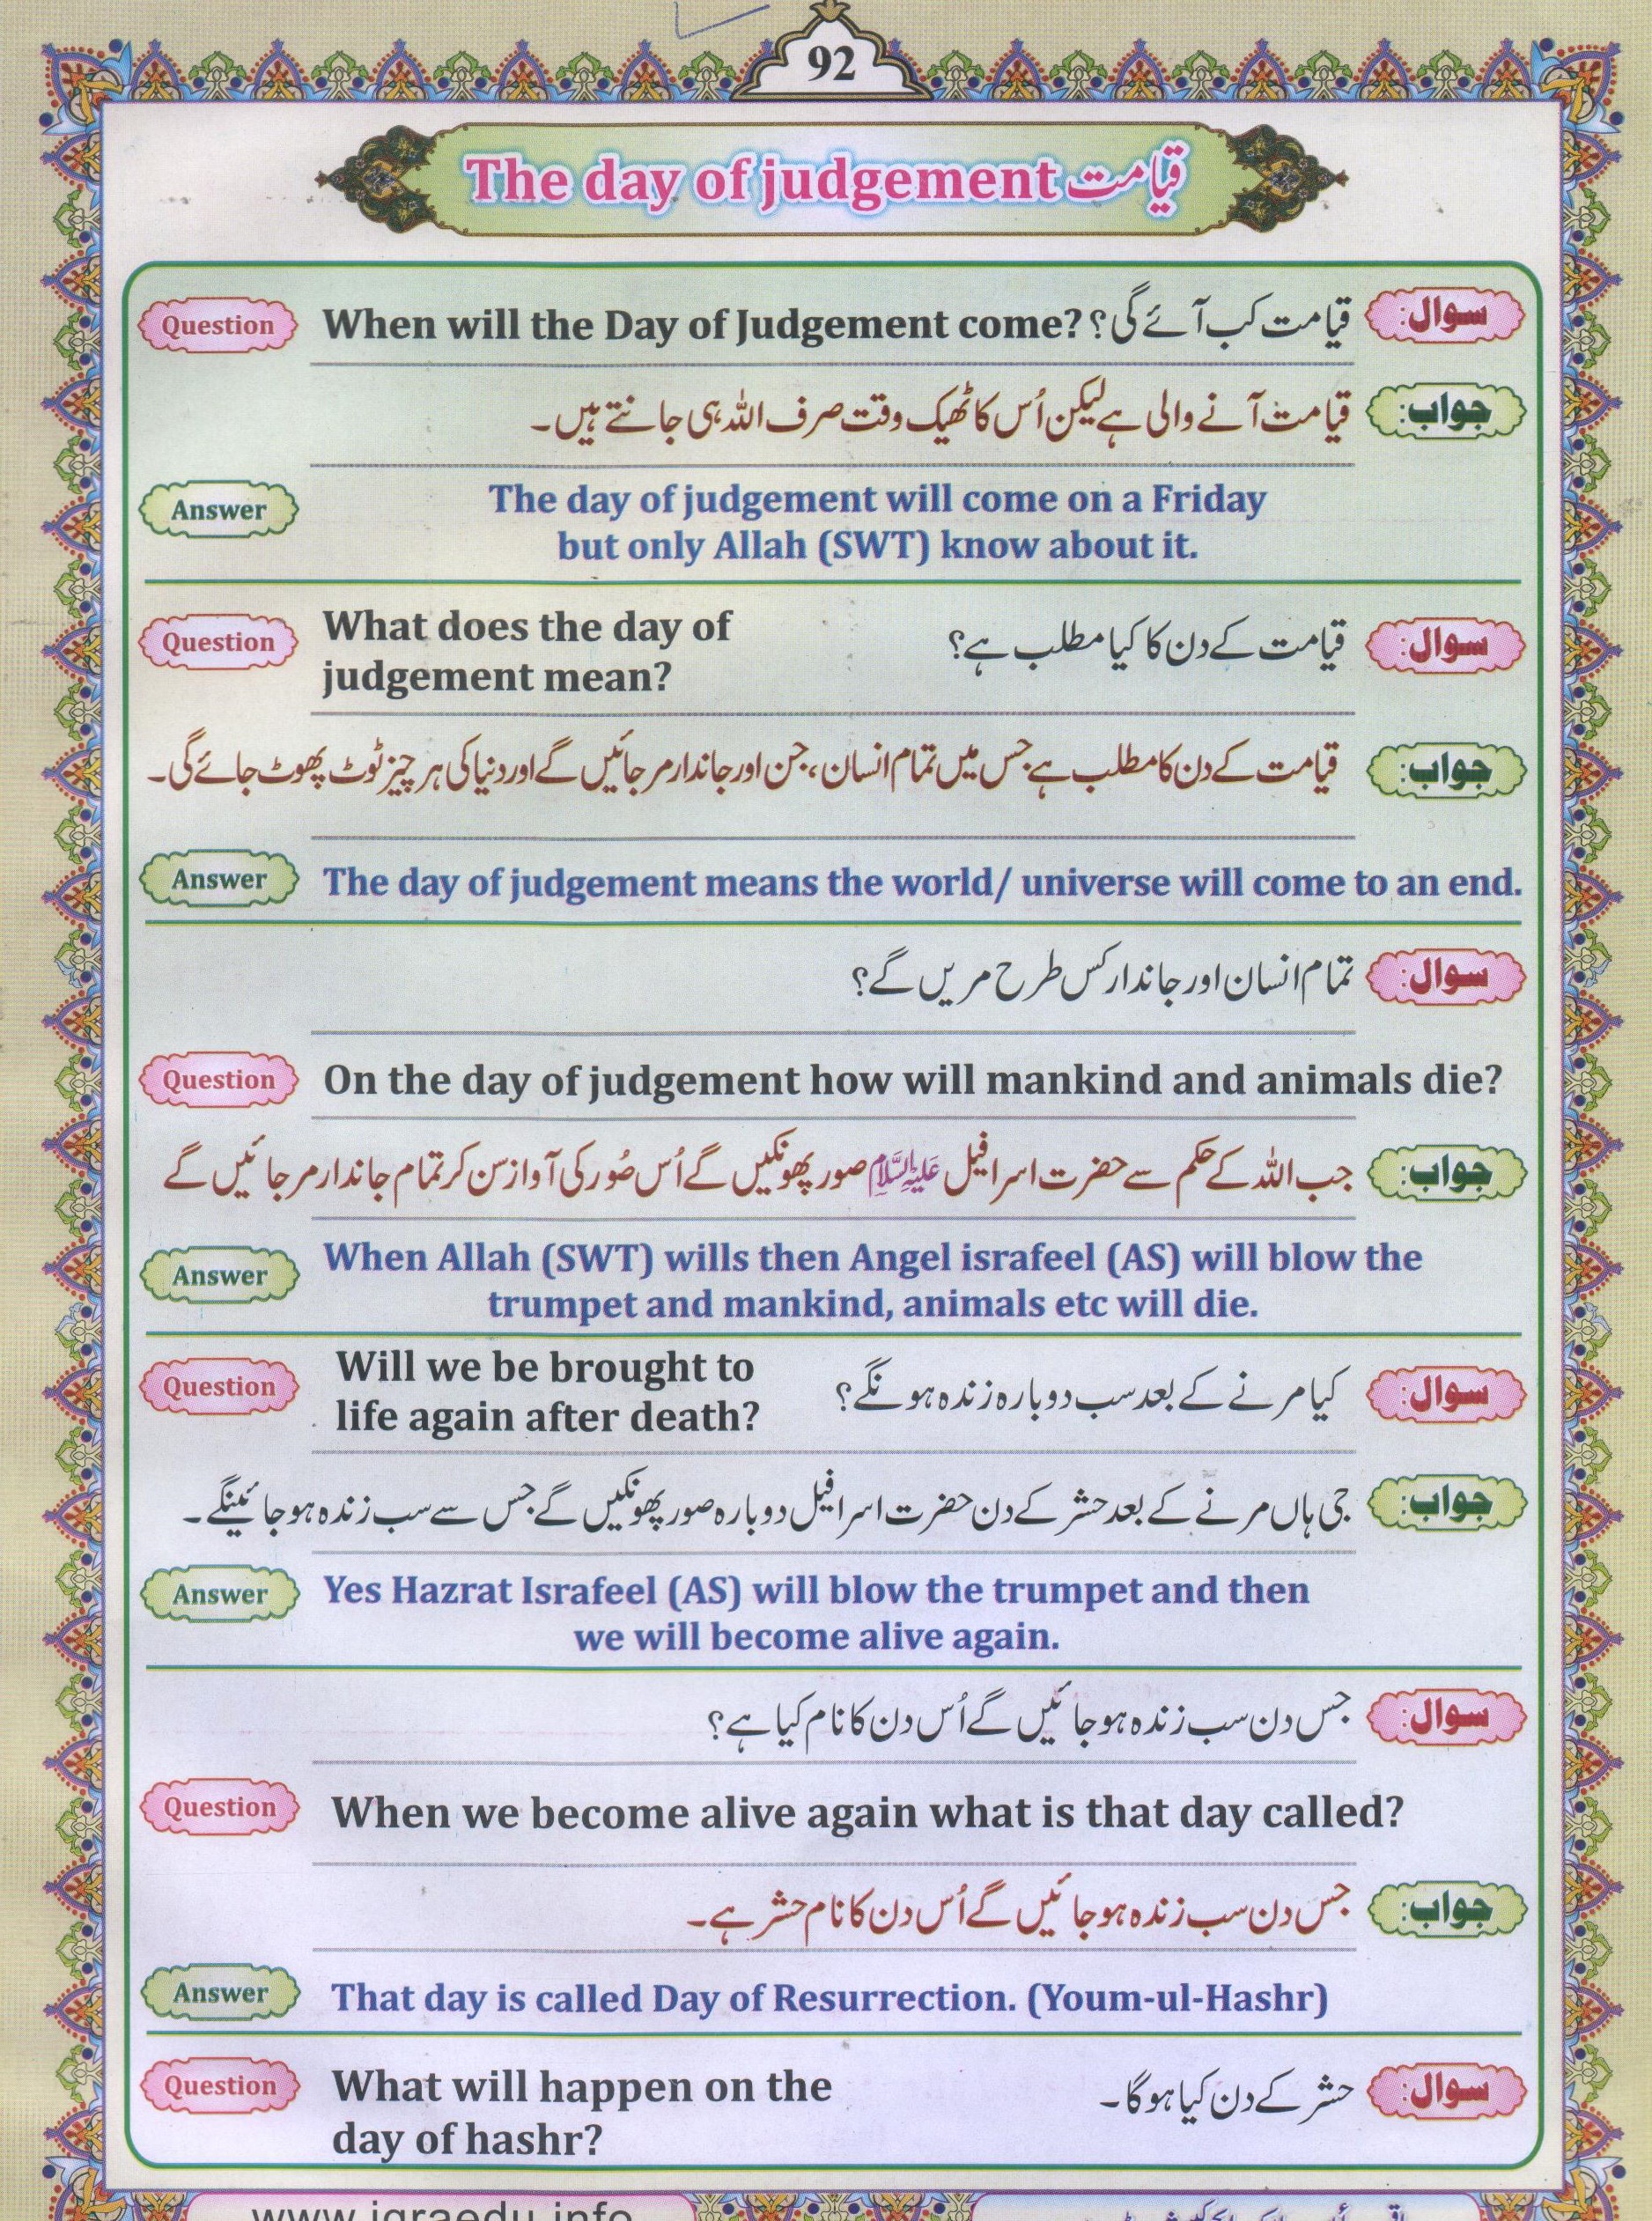 92
The day of judgement قیامت
Question When will the Day of Judgement come? قیامت کب آئے گی؟ سوال:
قیامت آنے والی ہے لیکن اُس کا ٹھیک وقت صرف اللہ ہی جانتے ہیں۔ جواب:
Answer The day of judgement will come on a Friday
but only Allah (SWT) know about it.
Question What does the day of
judgement mean?
سوال: قیامت کے دن کا کیا مطلب ہے؟
جواب: قیامت کے دن کا مطلب ہے جس میں تمام انسان، جن اور جاندار مر جائیں گے اور دنیا کی ہر چیز ٹوٹ پھوٹ جائے گی۔
Answer The day of judgement means the world/ universe will come to an end.
سوال: تمام انسان اور جاندار کس طرح مریں گے؟
Question On the day of judgement how will mankind and animals die?
جواب: جب اللہ کے حکم سے حضرت اسرافیل عَلَیْہِ السَّلَام صور پھونکیں گے اُس صُور کی آواز سن کر تمام جاندار مر جائیں گے
Answer When Allah (SWT) wills then Angel israfeel (AS) will blow the
trumpet and mankind, animals etc will die.
Question Will we be brought to
life again after death?
سوال: کیا مرنے کے بعد سب دوبارہ زندہ ہونگے؟
جواب: جی ہاں مرنے کے بعد حشر کے دن حضرت اسرافیل دوبارہ صور پھونکیں گے جس سے سب زندہ ہو جائینگے۔
Answer Yes Hazrat Israfeel (AS) will blow the trumpet and then
we will become alive again.
سوال: جس دن سب زندہ ہو جائیں گے اُس دن کا نام کیا ہے؟
Question When we become alive again what is that day called?
جواب: جس دن سب زندہ ہو جائیں گے اُس دن کا نام حشر ہے۔
Answer That day is called Day of Resurrection. (Youm-ul-Hashr)
Question What will happen on the
day of hashr?
سوال: حشر کے دن کیا ہو گا۔
www.iqraedu.info